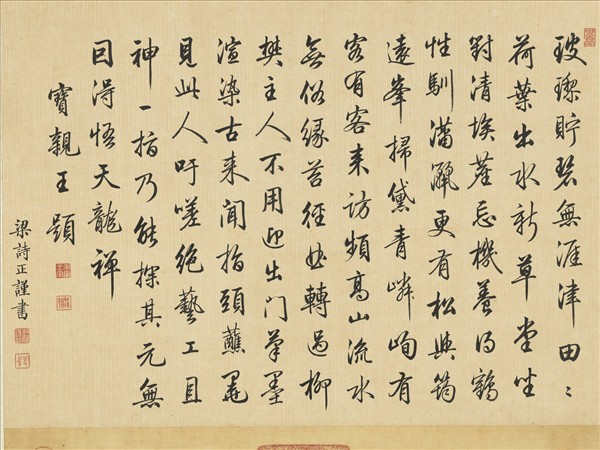 玻瓈貯碧無涯津田〻
荷葉出水新草堂坐
對清埃塵忘機養得鶴
性馴瀟灑更有松與筠
遠峯掃黛青嶙峋有
客有客來訪頻高山流水
無俗緣苔徑曲轉過柳
樊主人不用迎出門筆墨
渲染古來聞指頭蘸墨
見此人吁嗟絕藝工且
神一指乃能探其元無
因得悟天龍禪
寶親王題
梁詩正謹書